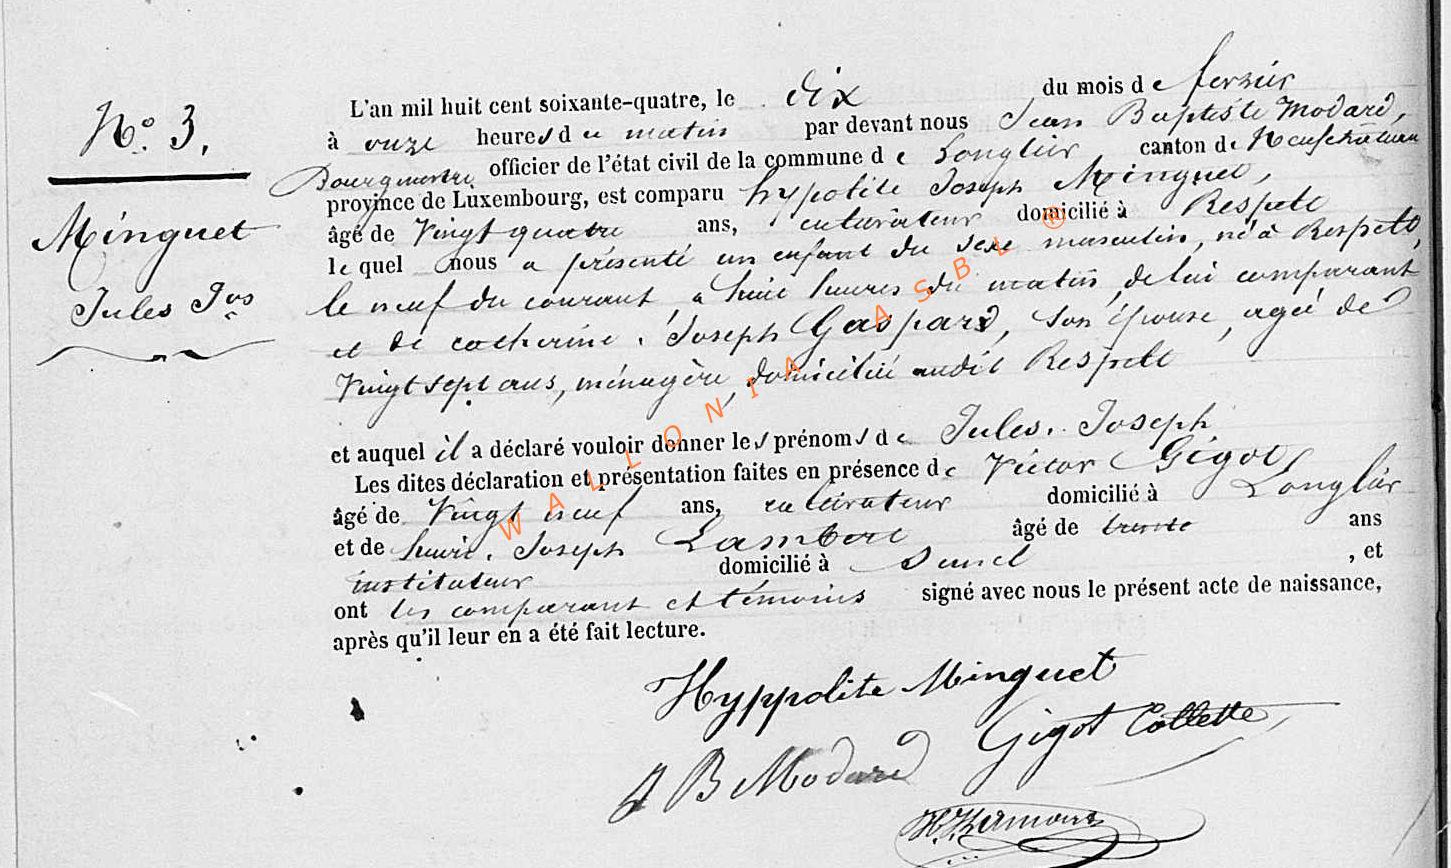 N° 3.
Minguet
Jules Jos
L'an mil huit cent soixante-quatre, le dix du mois de fevrier
à onze heures du matin par devant nous Jean Baptiste Modard,
Bourgmestre officier de l'état civil de la commune de Longlier canton de Neufchateau
province de Luxembourg, est comparu hypolite Joseph Minguet,
âgé de Vingt quatre ans, cultivateur domicilié à Respelt
lequel nous a présenté un enfant du sexe masculin, né à Respelt,
le neuf du courant, à huit heures du matin, de lui comparant
et de catherine Joseph Gaspard, son épouse, agée de
Vingt sept ans, ménagère, domiciliée audit Respelt
et auquel il a déclaré vouloir donner les prénoms de Jules Joseph
Les dites déclaration et présentation faites en présence de Victor Gigot
âgé de Vingt neuf ans, cultivateur domicilié à Longlier
et de henri Joseph Lambert âgé de trente ans
instituteur domicilié à , et
ont les comparant et témoins signé avec nous le présent acte de naissance,
après qu'il leur en a été fait lecture.
Hyppolite Minguet
Gigot Collette
J B Modard
WALLONIA ASBL ®